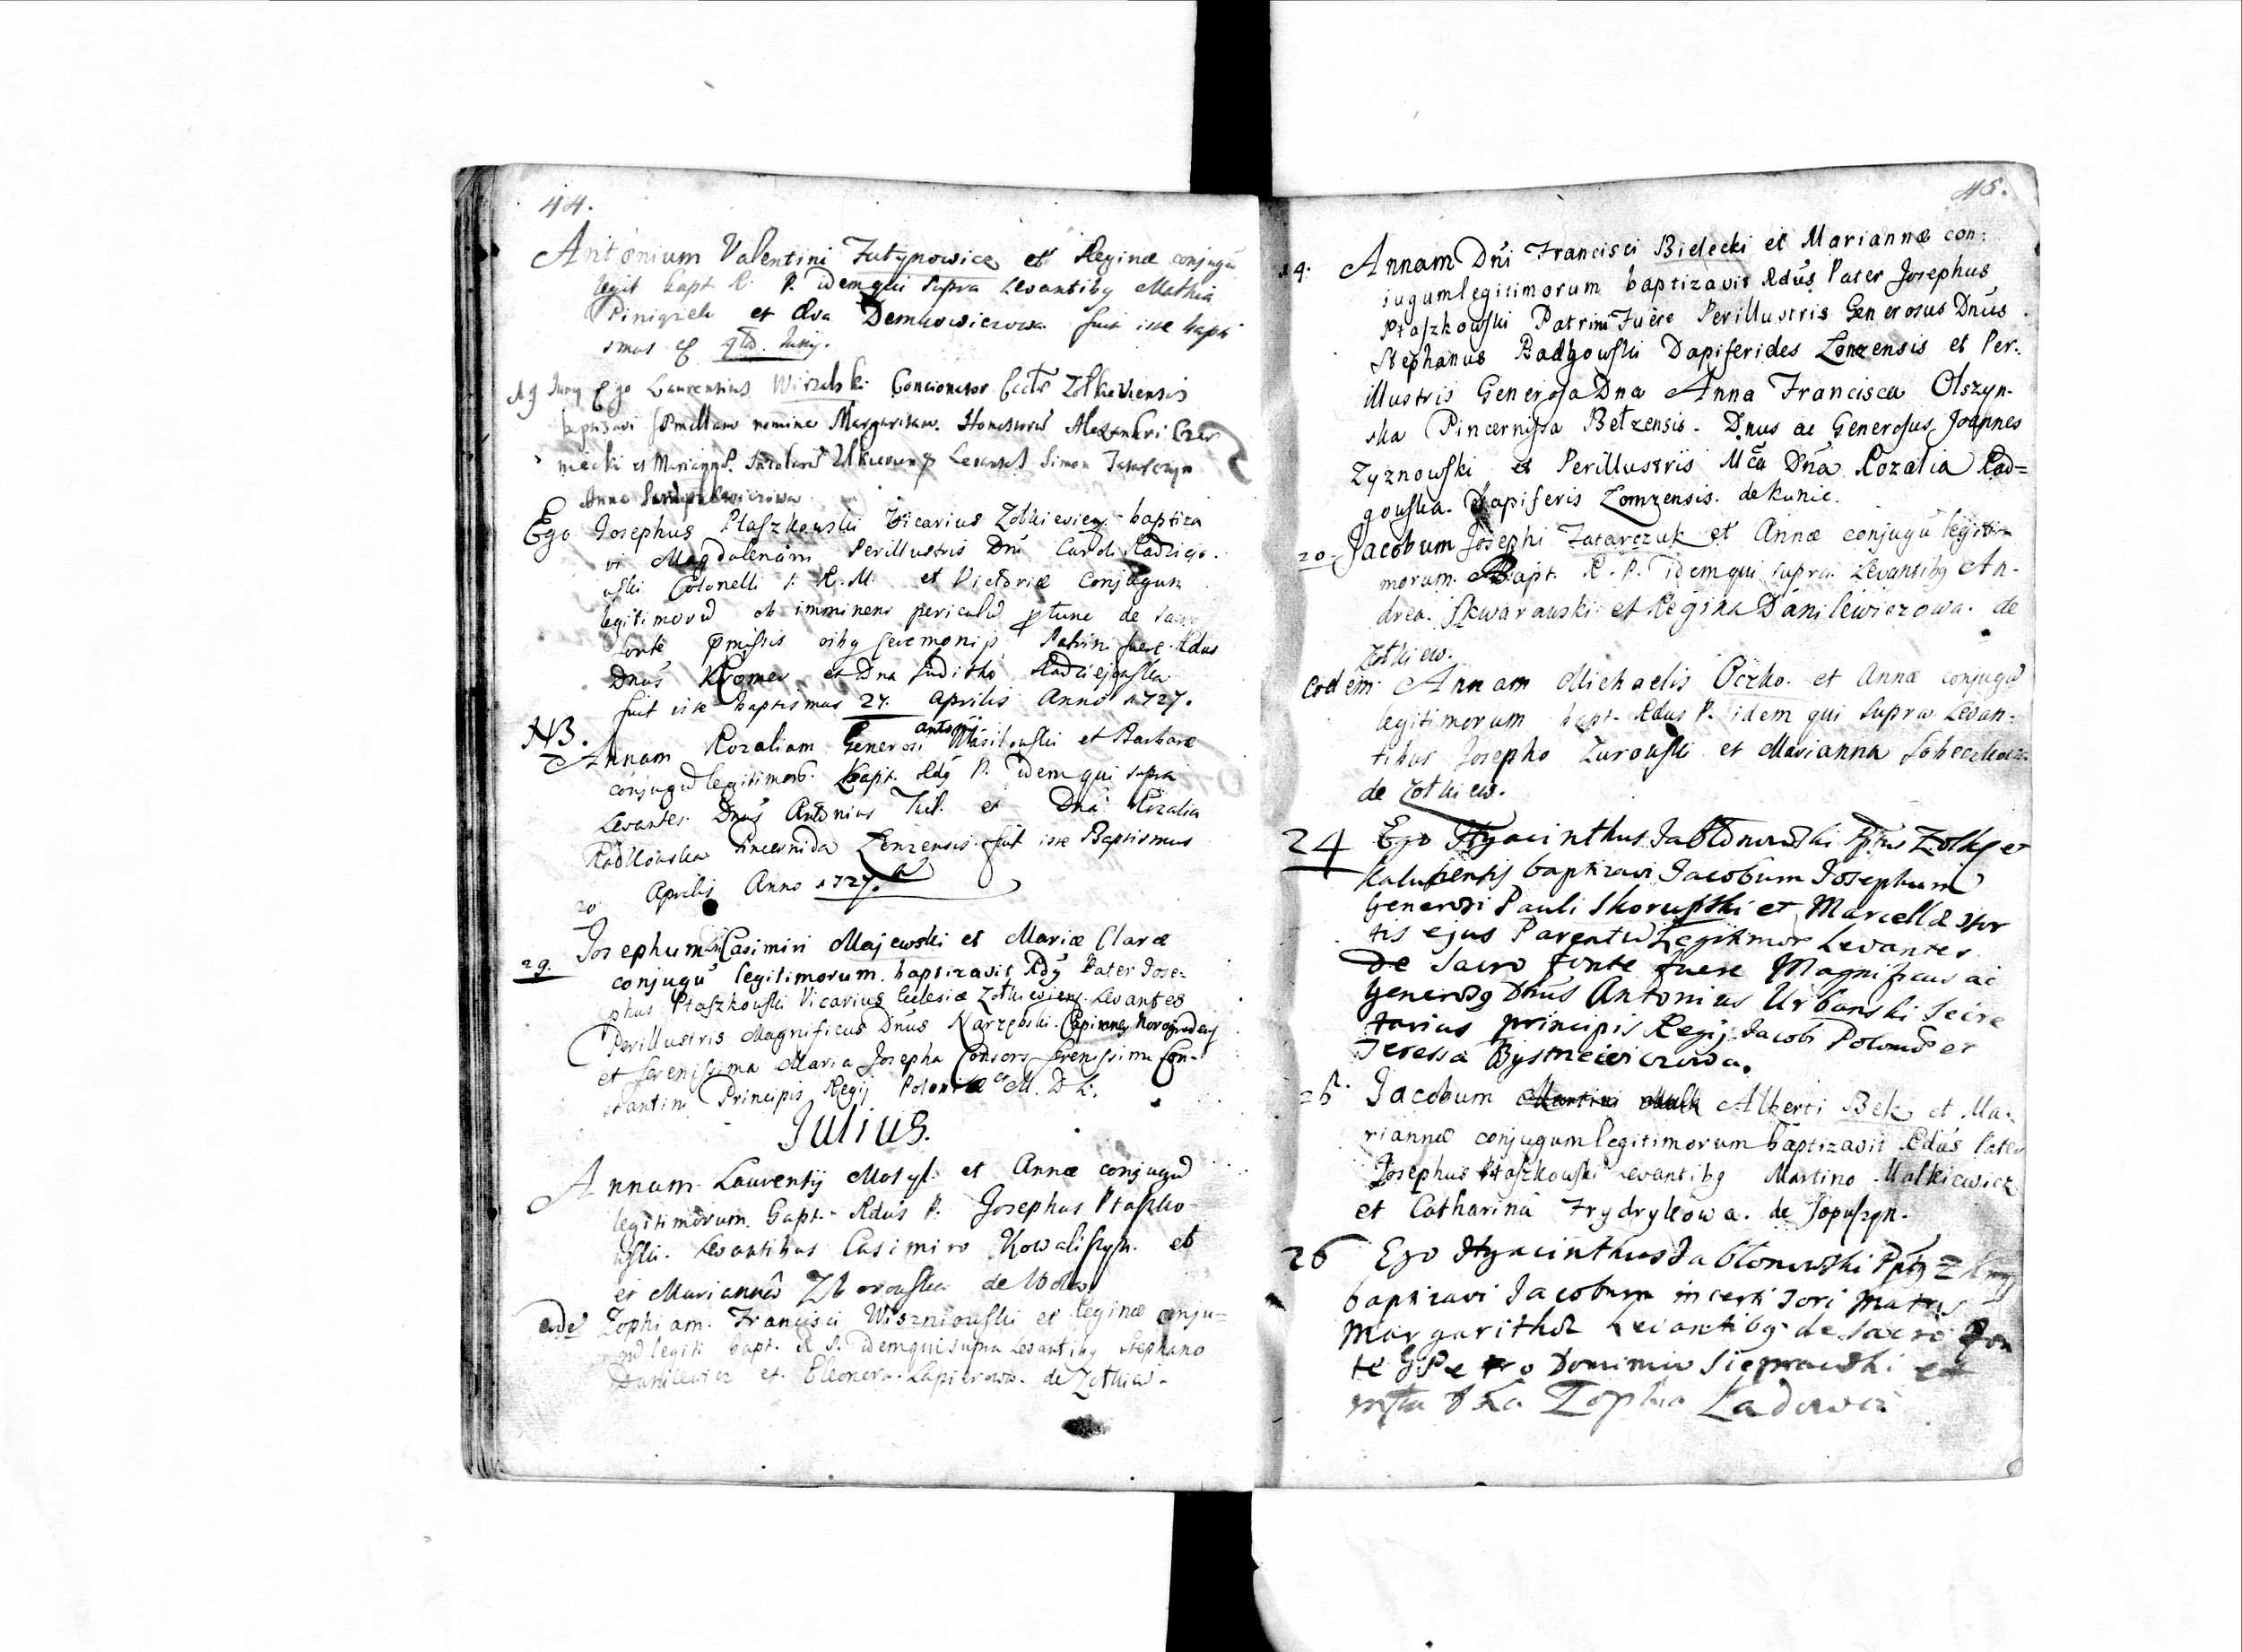 44.
Antonium Valentini Futynowicz et Reginæ conjugũ
legit bapt. R. P. idem qui supra Levantibg Mathia
et Eva Demkowiczowa fuit iste bapti
smus Juny.
19 Juny Ego Laurentius Wirzalski Concionator Zolkieviensis
baptizavi nomine Margaritam. Alexandri Czer
niecki et Levantes Simon
Anna
Ego Josephus Ptaszkowski Vicarius Zolkiewien. baptiza
vi Magdalenam Perillustris Dni Caroli Radziejo.
wski Colonelli S. R. M. et Victoriæ Conjugum
legitimorũ ob imminens periculũ de sacro
fonte Patrini fuere Rdus
Dnus Kromer et Dna Juditha Radziejowska
fuit iste baptismus 27. Aprilis Anno 1727.
NB.
Annam Rozaliam Generosi Antonij Wasilowski et Barbaræ
conjugũ legitimorũ. Bapt. Rdg P. idem qui supra
Levantes. Dnus Antonius et Dna Rozalia
Pincernida fuit iste Baptismus
20 Aprilis Anno 1727.
29. Josephum Casimiri Majewski et Mariæ Claræ
conjugũ legitimorum. baptizavit Rdg Pater Jose-
phus Ptaszkowski Vicarius Ecclesiæ Zolkiewien. Levantes
Perillustris Magnificus Dnus Karzębski
et serenissima Maria Josepha Consors serenissimi Con-
stantini Principis Regij Poloniæ et M. D. L.
Julius.
Annam Laurentij Motyl et Annæ conjugũ
legitimorum. Bapt. Rdus P. Josephus Ptaszko-
wski. Levantibus Casimiro Kowaliszyn. et
et Marianna Zborowska de
eadẽ Zophiam. Francisci Wiszniowski et Reginæ conju-
gũ legiti bapt. R. P. idem qui supra Levantibg Stephano
Danilewicz et Eleonora Lapierowa. de Zolkiew.
45.
14. Annam Dni Francisci Bielecki et Mariannæ con:
jugum legitimorum baptizavit Rdus Pater Josephus
Ptaszkowski Patrini Fuere Perillustris Generosus Dnus
Stephanus Radgowski Dapiferides et Per.
illustris Generosa Dna Anna Francisca Olszyn-
ska Pincernissa Belzensis. Dnus ac Generosus Joannes
Zyznowski et Perillustris Mca Dna Rozalia Rad=
gowska. Dapiferis Lomzensis. de Kunic.
20 Jacobum Josephi Tatarczuk et Annæ conjugũ legiti-
morum. Bapt. R. P. idem qui supra. Levantibg An-
drea. Skwarawski et Regina Danilewiczowa. de
Zolkiew.
Eodem Annam Michaelis Oczko. et Annæ conjugũ
legitimorum bapt. Rdus P. idem qui supra. Levan-
tibus Josepho Zurowski et Marianna
de Zolkiew.
24 Ego Hyacinthus Jablonowski Zolkg et
baptizavi Jacobum Josephum
Generosi Pauli Skorupski et Marcellæ
tis ejus Parentũ Legitimor Levantes
De Sacro fonte fuere Magnificus ac
Generosg Dnus Antonius Urbanski Secre
tarius principis Regij Jacobi Poloniæ et
Teressa Bystrzeiewiczowa.
25. Jacobum Alberti Bek et Ma.
riannæ conjugum legitimorum baptizavit Rdus Pater
Josephus Ptaszkowski Levantibg Martino Malkiewicz
et Catharina Frydrykowa. de Sopuszyn.
26 Ego Hyacinthus Jablonowski
baptizavi Jacobum incerti Tori Matris
Margarithæ Levantibg de Sacro Fon
te G. Petro Dominio Sieprawski et
Zophia